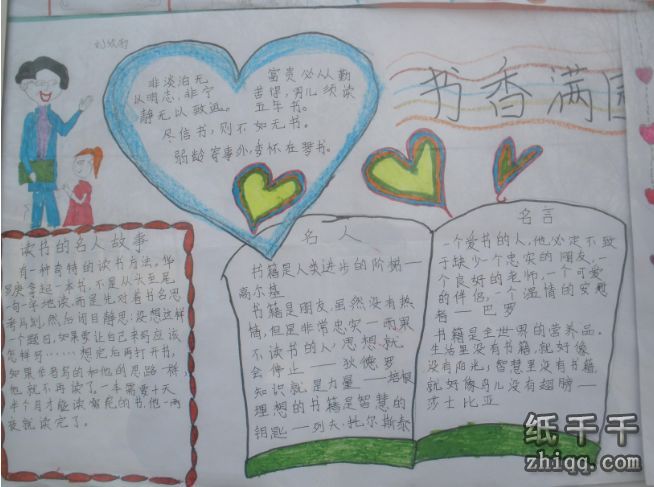 刘欣雨
书香满园
非淡泊无
以明志,非宁
静无以致远。
富贵必从勤
苦得,男儿须读
五车书。
尽信书,则不如无书。
弱龄寄事外,委怀在琴书。
读书的名人故事
有一种奇特的读书方法,华
罗庚拿起一本书,不是从头至尾
一句一字地读,而是先对着书名思
考片刻,然后闭目静思:设想这样
一个题目,如果要让自己来写应该
怎样写……想完后再打开书,
如果作者写的和他的思路一样,
他就不再读了。一本需要十天
半个月才能读完的书,他一两
夜就读完了。
名人
书籍是人类进步的阶梯——
高尔基
书籍是朋友,虽然没有热
情,但是非常忠实——雨果
不读书的人,思想就
会停止——狄德罗
知识就是力量——培根
理想的书籍是智慧的
钥匙——列夫·托尔斯泰
名言
一个爱书的人,他必定不致
于缺少一个忠实的朋友,一
个良好的老师,一个可爱
的伴侣,一个温情的安慰
者——巴罗
书籍是全世界的营养品。
生活里没有书籍,就好像
没有阳光;智慧里没有书籍,
就好像鸟儿没有翅膀——
莎士比亚
纸千千
zhiqq.com